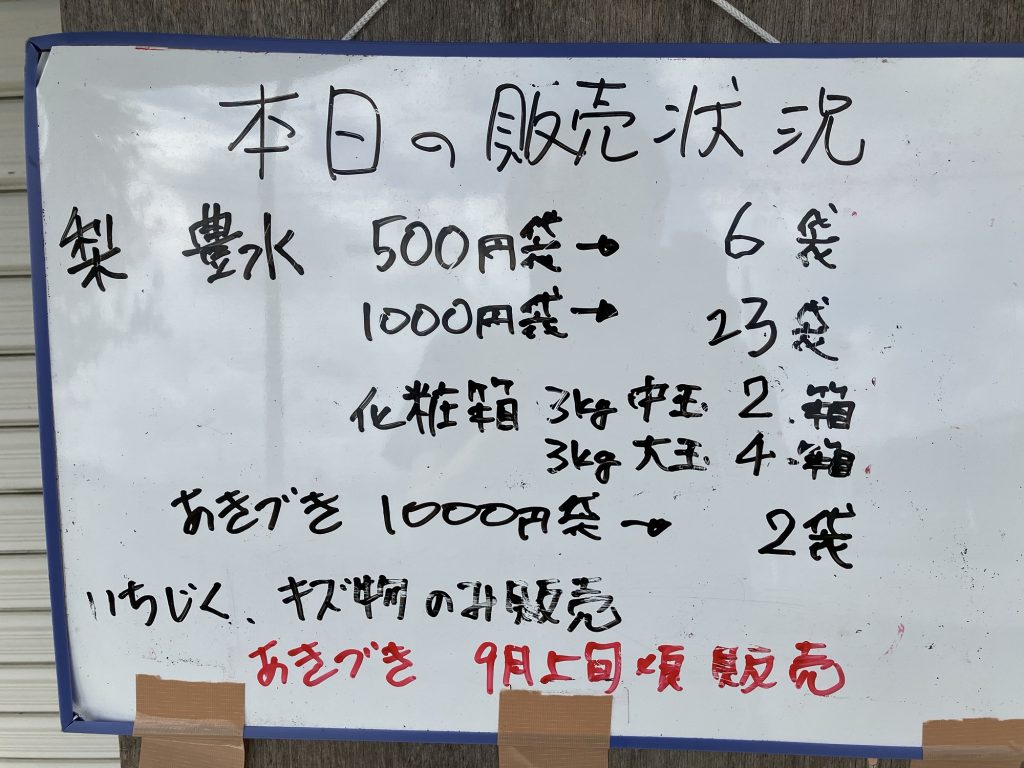 本日の販売状況
梨 豊水 500円袋→ 6袋
1000円袋→ 23袋
化粧箱 3kg 中玉 2 箱
3kg 大玉 4 箱
あきづき 1000円袋→ 2袋
いちじく、キズ物のみ販売
あきづき 9月上旬頃 販売